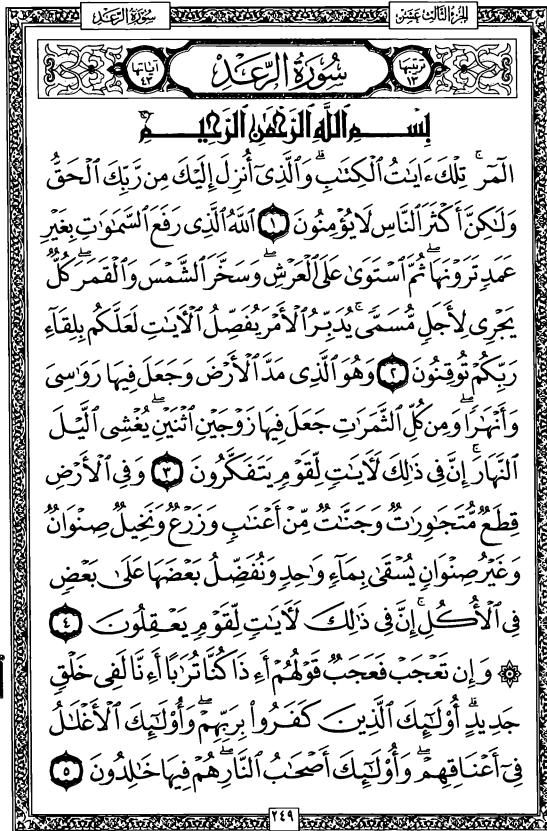 الجزء الثالث عشر
سورة الرعد
ترتيبها ١٣
سُورَةُ الرَّعْدِ
آياتها ٤٣
بِسْمِ اللَّهِ الرَّحْمَٰنِ الرَّحِيمِ
الٓمٓر ۚ تِلْكَ ءَايَٰتُ ٱلْكِتَٰبِ ۗ وَٱلَّذِىٓ أُنزِلَ إِلَيْكَ مِن رَّبِّكَ ٱلْحَقُّ
وَلَٰكِنَّ أَكْثَرَ ٱلنَّاسِ لَا يُؤْمِنُونَ ١ ٱللَّهُ ٱلَّذِى رَفَعَ ٱلسَّمَٰوَٰتِ بِغَيْرِ
عَمَدٍ تَرَوْنَهَا ۖ ثُمَّ ٱسْتَوَىٰ عَلَى ٱلْعَرْشِ ۖ وَسَخَّرَ ٱلشَّمْسَ وَٱلْقَمَرَ ۖ كُلٌّ
يَجْرِى لِأَجَلٍ مُّسَمًّى ۚ يُدَبِّرُ ٱلْأَمْرَ يُفَصِّلُ ٱلْءَايَٰتِ لَعَلَّكُم بِلِقَآءِ
رَبِّكُمْ تُوقِنُونَ ٢ وَهُوَ ٱلَّذِى مَدَّ ٱلْأَرْضَ وَجَعَلَ فِيهَا رَوَٰسِىَ
وَأَنْهَٰرًا ۖ وَمِن كُلِّ ٱلثَّمَرَٰتِ جَعَلَ فِيهَا زَوْجَيْنِ ٱثْنَيْنِ ۖ يُغْشِى ٱلَّيْلَ
ٱلنَّهَارَ ۚ إِنَّ فِى ذَٰلِكَ لَءَايَٰتٍ لِّقَوْمٍ يَتَفَكَّرُونَ ٣ وَفِى ٱلْأَرْضِ
قِطَعٌ مُّتَجَٰوِرَٰتٌ وَجَنَّٰتٌ مِّنْ أَعْنَٰبٍ وَزَرْعٌ وَنَخِيلٌ صِنْوَانٌ
وَغَيْرُ صِنْوَانٍ يُسْقَىٰ بِمَآءٍ وَٰحِدٍ وَنُفَضِّلُ بَعْضَهَا عَلَىٰ بَعْضٍ
فِى ٱلْأُكُلِ ۚ إِنَّ فِى ذَٰلِكَ لَءَايَٰتٍ لِّقَوْمٍ يَعْقِلُونَ ٤
۞ وَإِن تَعْجَبْ فَعَجَبٌ قَوْلُهُمْ أَءِذَا كُنَّا تُرَٰبًا أَءِنَّا لَفِى خَلْقٍ
جَدِيدٍ ۗ أُو۟لَٰٓئِكَ ٱلَّذِينَ كَفَرُوا۟ بِرَبِّهِمْ ۖ وَأُو۟لَٰٓئِكَ ٱلْأَغْلَٰلُ
فِىٓ أَعْنَاقِهِمْ ۖ وَأُو۟لَٰٓئِكَ أَصْحَٰبُ ٱلنَّارِ ۖ هُمْ فِيهَا خَٰلِدُونَ ٥
٢٤٩